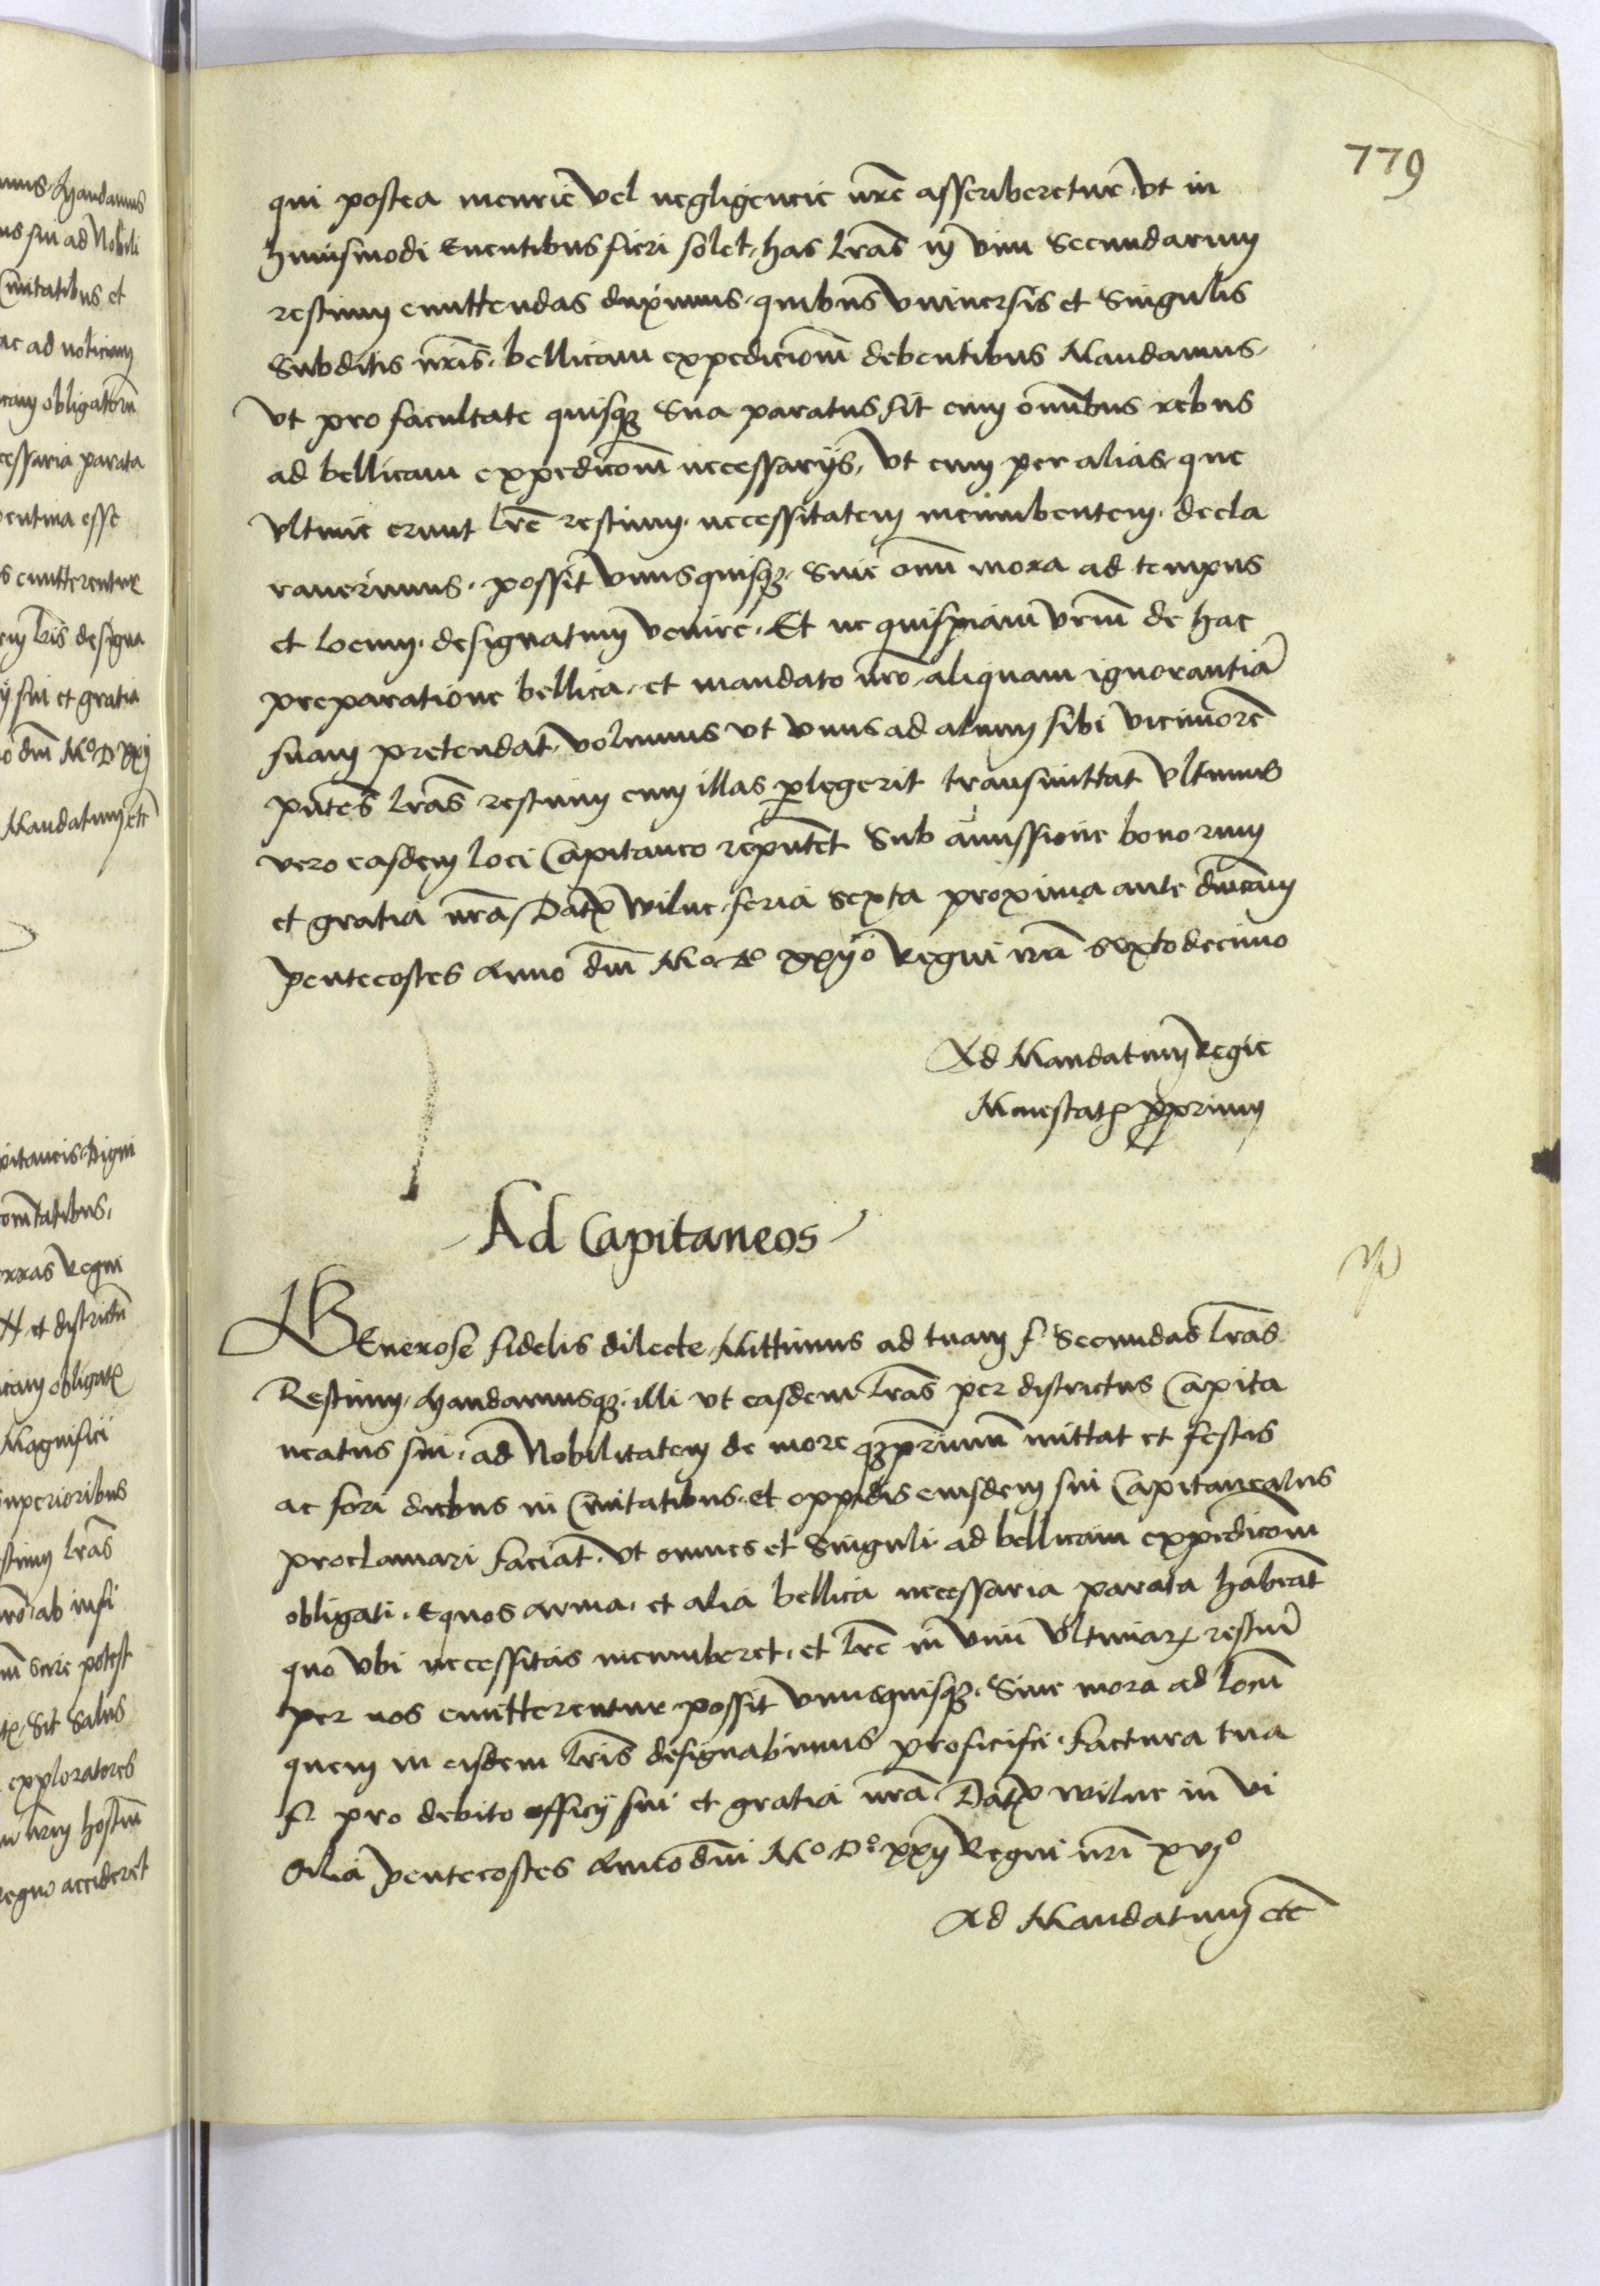 779
qui postea incurie vel negligencie nr̄e asscriberetur, vt in
huiusmodi Euentibus fieri solet, has lr̄as in vim Secundarum
restium emittendas duximus, quibus vniuersis et Singulis
Subditis nr̄is, bellicam expedicionem debentibus Mandamus,
vt pro facultate quisq3 Sua paratus sit cum omnibus rebus
ad bellicam expedicōem necessarijs, vt cum per alias, que
vltime erunt lr̄e restium, necessitatem incumbentem, decla
rauerimus, possit vnusquisq3, Sine omni mora ad tempus
et locum, designatum venire, Et ne quispiam vr̄um de hac
preparatione bellica, et mandato nr̄o aliquam ignorantiā
suam pretendat, volumus vt vnus ad alium sibi viciniorē
pn̄tes lr̄as restium cum illas perlegerit transmittat vltimus
vero easdem loci Capitaneo repn̄tet Sub amissione bonorum
et gratia nr̄a, Dat3 wilne, feria sexta proxima ante dn̄icam
pentecostes Anno dn̄i Mo Do xxijo Regni nr̄i sextodecimo
Ad Mandatum Regie
Maiestatis proprium
Ad Capitaneos
GEnerose fidelis dilecte, Mittimus ad tuam f. Secundas lr̄as
Restium, Mandamusq3, illi vt easdem lr̄as per districtus Capita
neatus sui, ad Nobilitatem de more q3primum mittat et festis
ac fori diebus in Ciuitatibus, et oppidis eiusdem sui Capitaneatus
proclamari faciat, vt omnes et Singuli ad bellicam expedicōem
obligati, Equos Arma, et alia bellica necessaria parata habeāt
quo vbi necessitas incumberet, et lr̄e in vim vltimarum restiū
per nos emitterentur possit vnusquisq3, Sine mora ad locū
quem in eisdem lr̄is designabimus proficisci, factura tua
f. pro debito officij sui et gratia nr̄a, Dat3 wilne in vi
gilia pentecostes Anno dn̄i Mo Do xxij Regni nr̄i xvjo
Ad Mandatum etc̄